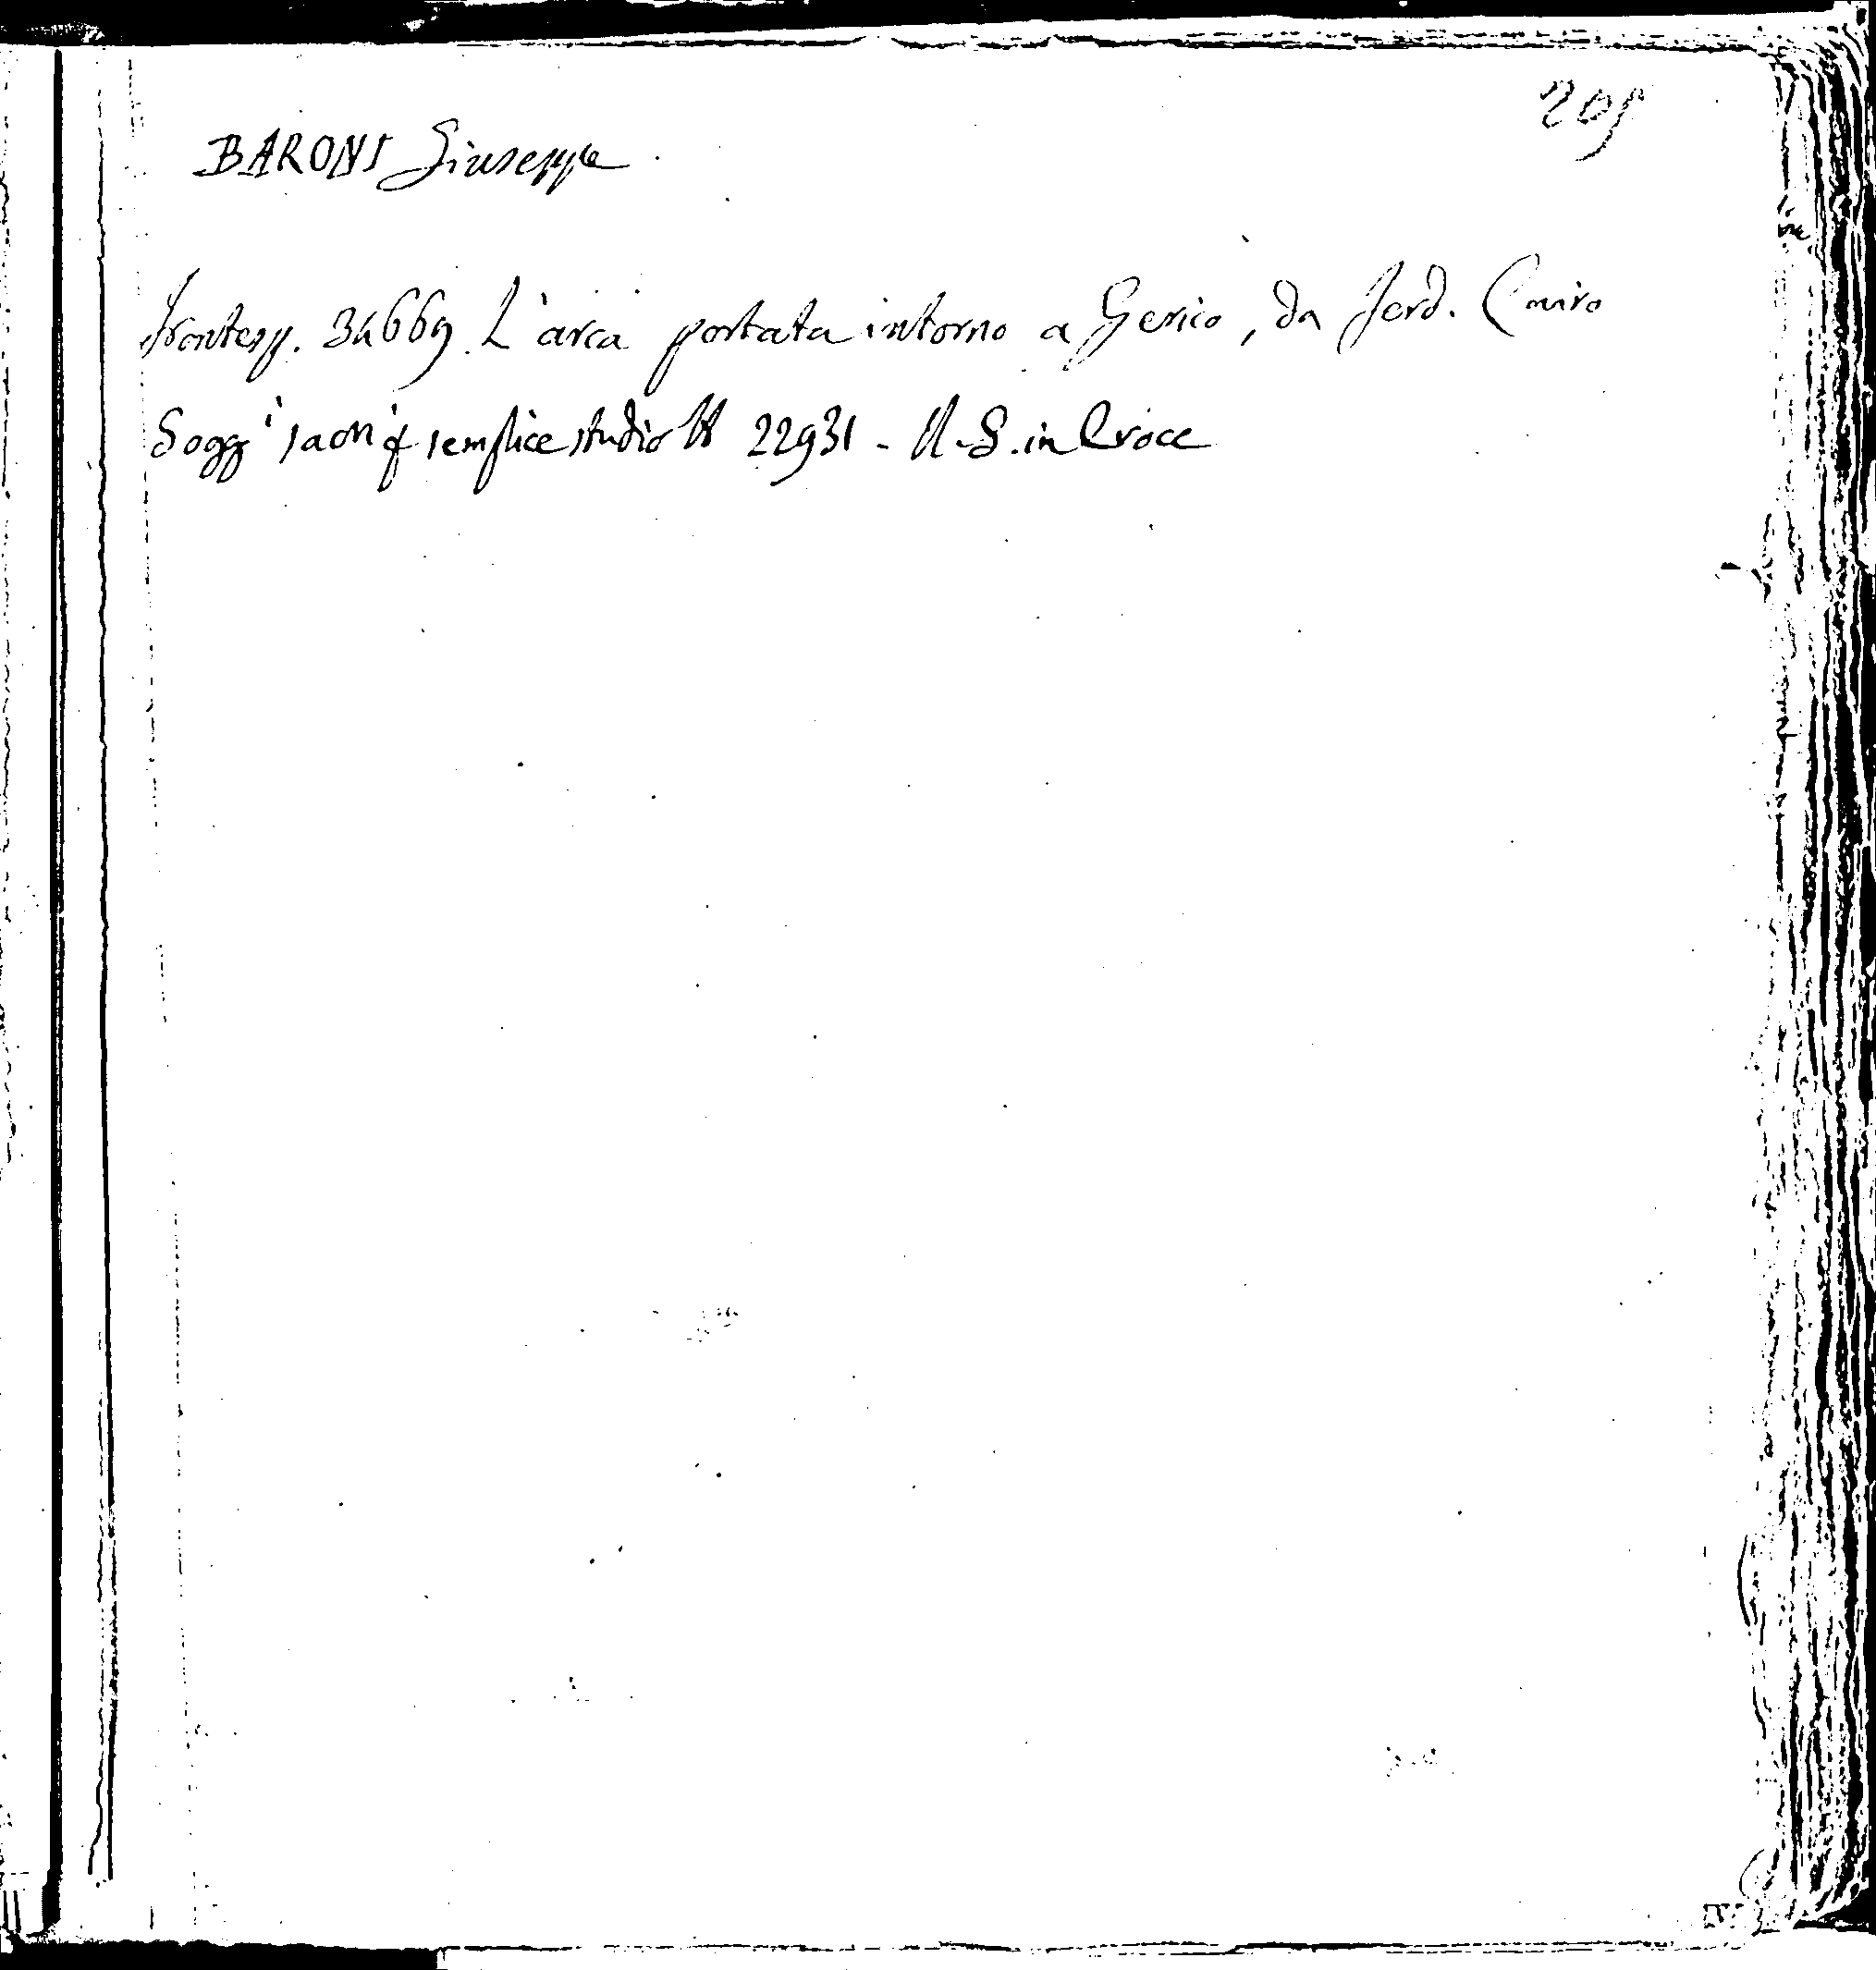 209
BARONI Giuseppe
Frontesp. 34669. L'arca portata intorno a Gerico, da Ferd. Cairo
Sogg' sacri semplice studio 22931 - N. S. in Croce